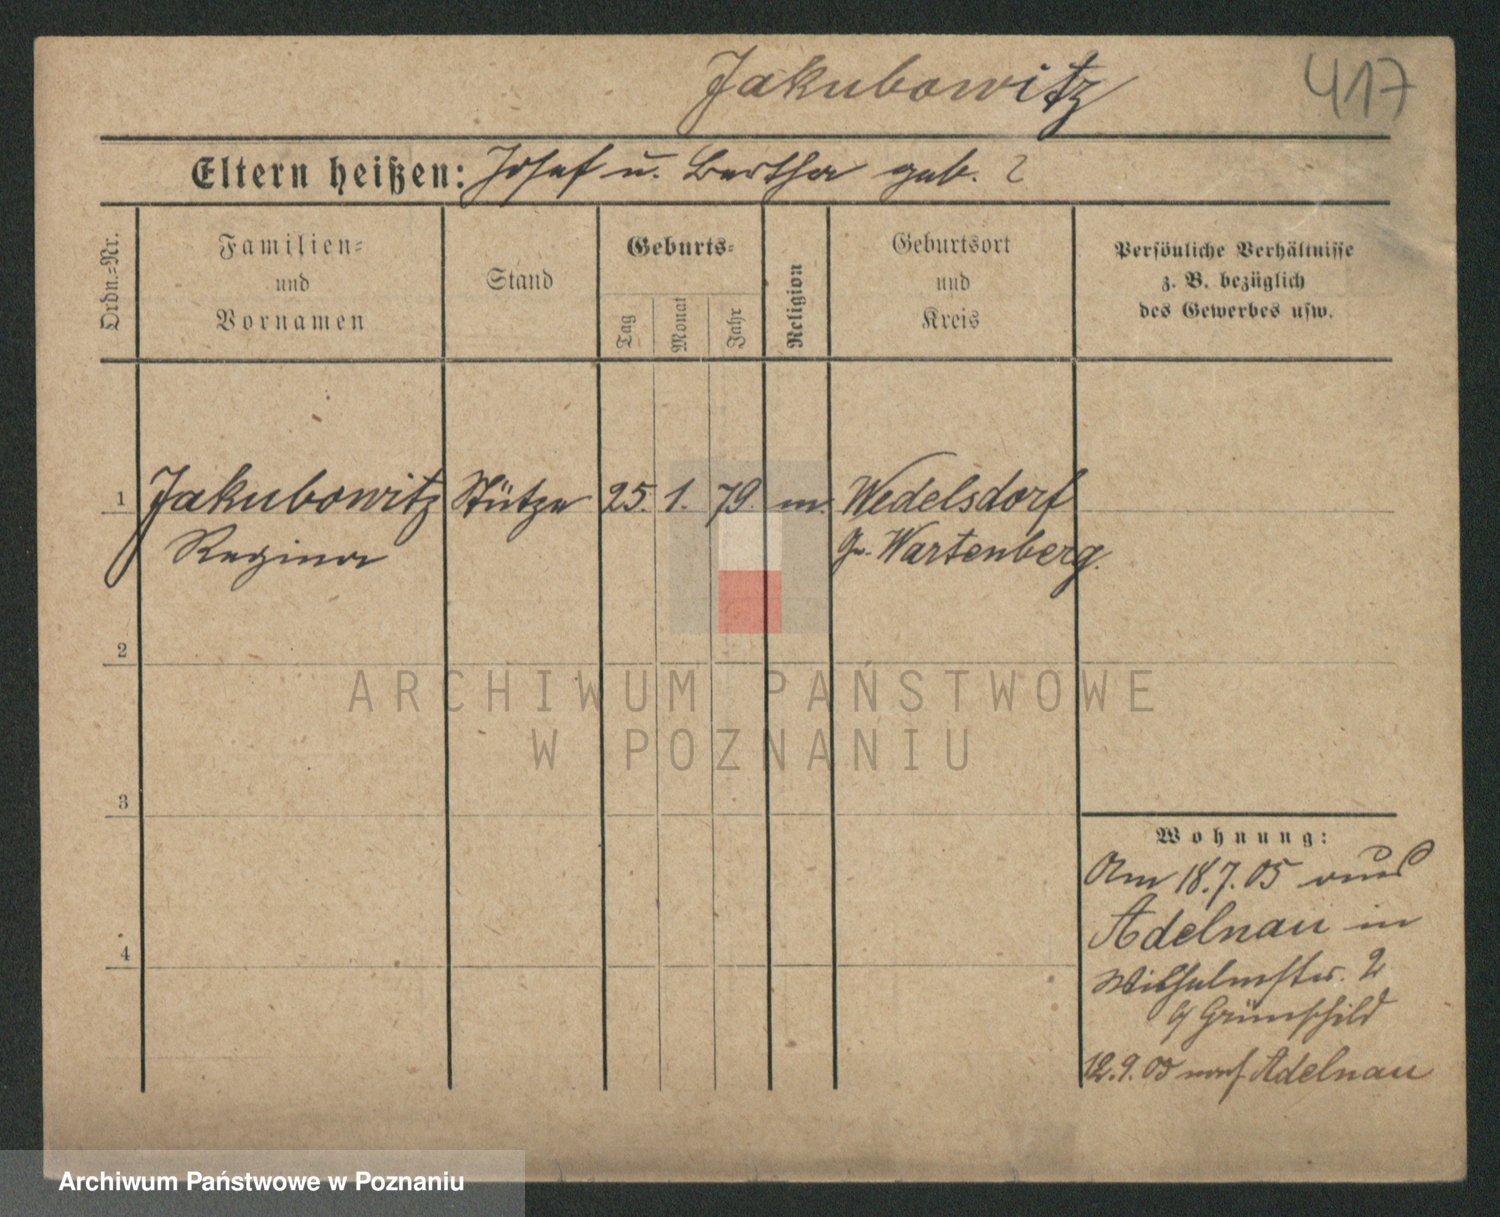 Jakubowitz
417
Eltern heißen: Josef u. Bertha geb. ?
Ordn.=Nr.
Familien=
und
Vornamen
Stand
Geburts=
Tag
Monat
Jahr
Religion
Geburtsort
und
Kreis
Persönliche Verhältnisse
z. B. bezüglich
des Gewerbes usw.
1 Jakubowitz Stütze 25. 1. 79. m. Wedelsdorf
Regina Gr. Wartenberg.
2
3
4
Wohnung:
Am 18.7.05 aus
Adelnau in
Wilhelmstr. 2
b/ Grünschild
12.9.05 nach Adelnau
ARCHIWUM PAŃSTWOWE
W POZNANIU
Archiwum Państwowe w Poznaniu